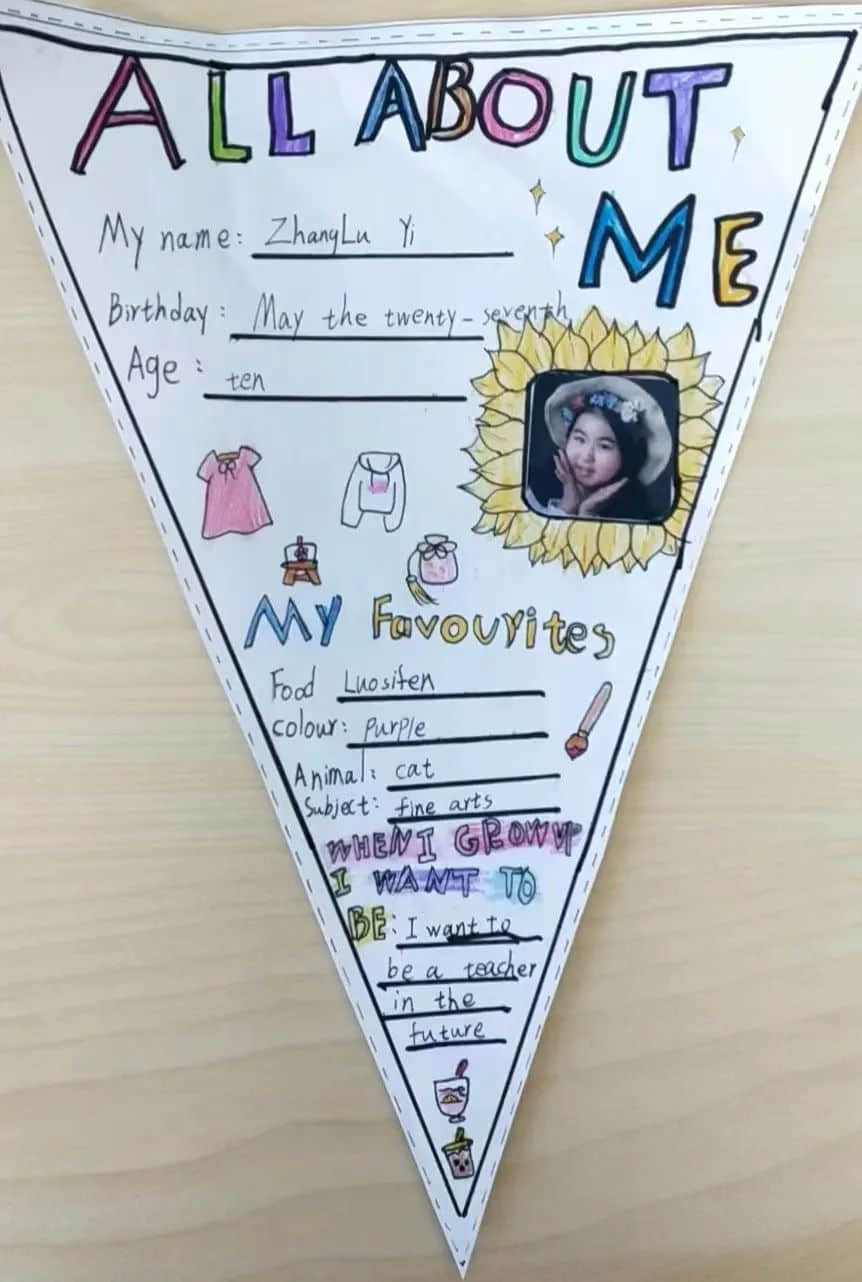 ALL ABOUT
ME
My name: ZhangLu Yi
Birthday: May the twenty-seventh
Age: ten
My Favourites
Food Luosifen
colour: purple
Animal: cat
Subject: fine arts
WHEN I GROW UP
I WANT TO
BE: I want to
be a teacher
in the
future